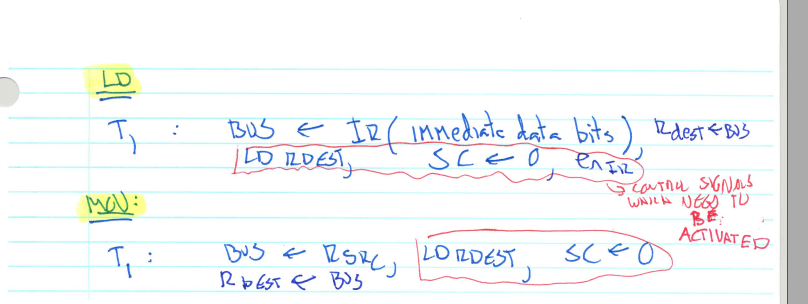 LD
T1 : BUS ← IR (immediate data bits), Rdest ← BUS
LD RDEST, SC ← 0, en IR
→ CONTROL SIGNALS
WHICH NEED TO
BE
ACTIVATED
MOV:
T1 : BUS ← RSRC, LD RDEST, SC ← 0
RDEST ← BUS